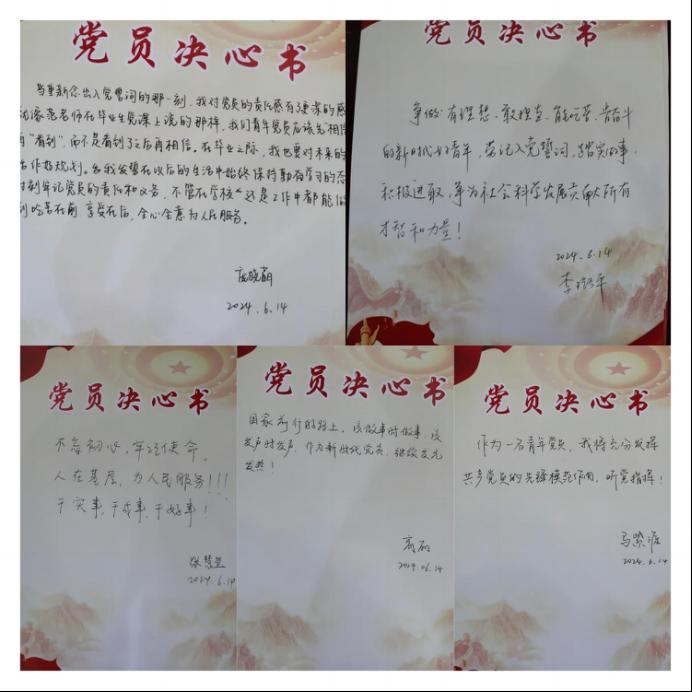 党员决心书
当重新念出入党誓词的那一刻,我对党员的责任感有了更深的感
范老师在毕业生党课上说的那样,我们青年党员应该先“相信
再“看到”,而不是看到了之后再相信。在毕业之际,我也要对未来的
作好规划。我发誓在以后的生活中始终保持勤奋学习的态
时刻牢记党员的责任和义务,不管在学校还是工作中都能做
到吃苦在前,享受在后,全心全意为人民服务。
2024.6.14
党员决心书
争做有理想、敢担当、能吃苦、肯奋斗
的新时代好青年,牢记入党誓词,踏实做事,
积极进取,争为社会科学发展贡献所有
才智和力量!
2024.6.14
党员决心书
不忘初心,牢记使命,
人在基层,为人民服务!!!
干实事,干成事,干好事!
2024.6.14
党员决心书
国家前行的路上,该做事时做事,该
发声时发声,作为新时代党员,继续发光
发热!
高砳
2024.06.14
党员决心书
作为一名青年党员,我将充分发挥
共产党员的先锋模范作用,听党指挥!
2024.6.14